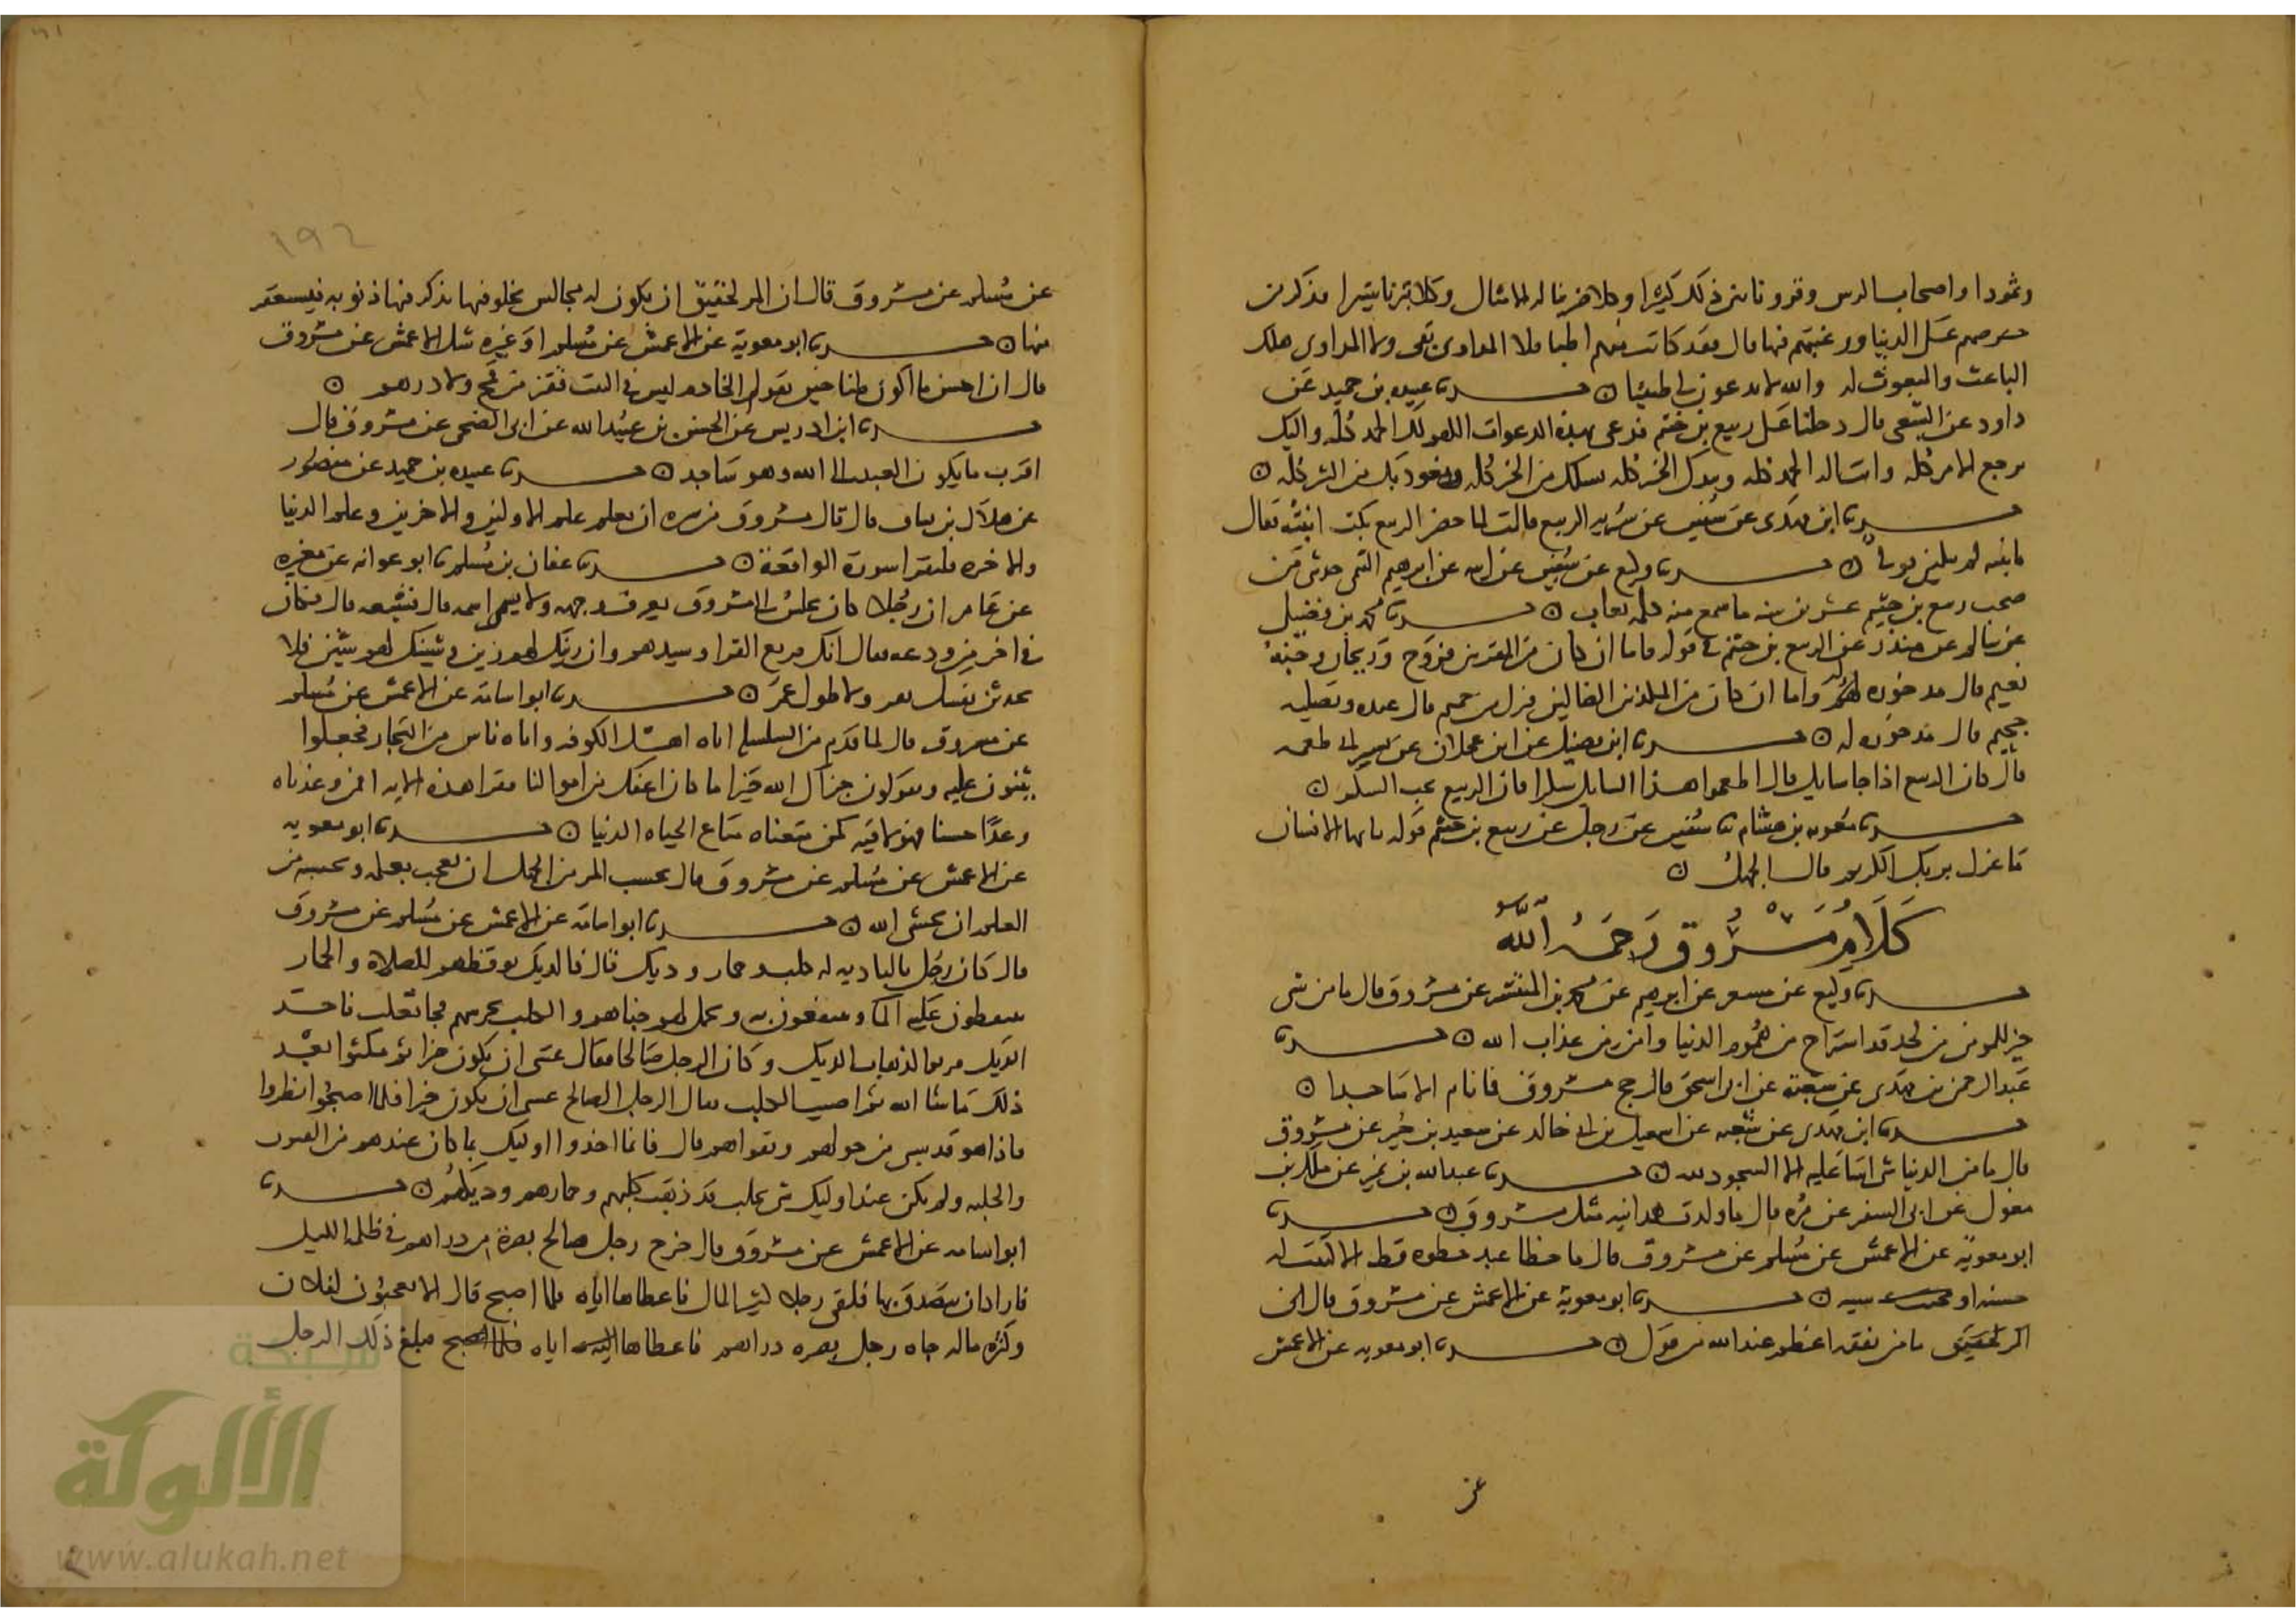 وثمودا واصحاب الرس وقرونا بين ذلك كثيرا وكلا ضربنا له الامثال وكلا تبرنا تتبيرا فذكر من
حرصهم على الدنيا ورغبتهم فيها قال فقد كانت فيهم اطبا فلا المداوي بقي ولا المداوى هلك
الباعت والمبعوث له والله لا تدعون لي طبيبا ن حدثنا عبيده بن حميد عن
داود عن الشعبي قال دخلنا على ربيع بن خثيم فدعى بهذه الدعوات اللهم لك الحمد كله واليك
يرجع الامر كله وانت اله الحمد كله وبيدك الخير كله نسالك من الخير كله ونعوذ بك من الشر كله ن
حدثنا ابن مهدي عن سفين عن سريه الربيع قالت لما حضر الربيع بكت ابنته فقال
يابنيه لم تبكين ن حدثنا وكيع عن سفين عن ابيه عن ابرهيم التيمي حدثني من
صحب ربيع بن خثيم عشرين سنه ما سمع منه كلمه تعاب ن حدثنا محمد بن فضيل
عن سالم عن منذر عن الربيع بن خثيم في قوله فاما ان كان من المقربين فروح وريحان وجنة
نعيم قال مدخوره له واما ان كان من المكذبين الضالين فنزل من حميم قال عنده وتصليه
جحيم قال مدخوره له ن حدثنا ابن فضيل عن ابن عجلان عن نسير ابي طعمه
قال كان الربيع اذا جا سايل قال اطعموا هذا السايل سكرا فان الربيع يحب السكر ن
حدثنا معويه بن هشام ثنا سفين عن رجل عن ربيع بن خثيم قوله يايها الانسان
ما غرك بربك الكريم قال الجهل ن
كلام مسروق رحمه الله
حدثنا وكيع عن مسعر عن ابرهيم عن محمد بن المنتشر عن مسروق قال ما من شي
خير للمومن من لحد قد استراح من هموم الدنيا وامن من عذاب الله ن حدثنا
عبد الرحمن بن مهدي عن شعبة عن ابي اسحق قال حج مسروق فما نام الا ساجدا ن
حدثنا ابن مهدي عن شعبه عن اسمعيل بن ابي خالد عن سعيد بن جبير عن مسروق
قال ما من الدنيا شي اسا عليه الا السجود لله ن حدثنا عبد الله بن نمير عن ملك بن
مغول عن ابي السفر عن مره قال ما ولدت همدانيه مثل مسروق ن حدثنا
ابو معوية عن الاعمش عن مسلم عن مسروق قال ما خطا عبد خطوه قط الا كتبت له
حسنه او سيه ن حدثنا ابو معوية عن الاعمش عن مسروق قال
المر لحقيق ما من نفقه اعظم عند الله من قول ن حدثنا ابو معويه عن الاعمش
عن
١٩٢
عن مسلم عن مسروق قال ان المر لحقيق ان يكون له مجالس يخلو فيها يذكر فيها ذنوبه فيستغفر
منها ن حدثنا ابو معوية عن الاعمش عن مسلم او غيره شك الاعمش عن مسروق
قال ان احسن ما اكون ظنا حين يقول لي الخادم ليس في البيت قفيز من قمح ولا درهم ن
حدثنا ابن ادريس عن الحسن بن عبيد الله عن ابي الضحى عن مسروق قال
اقرب ما يكون العبد الى الله وهو ساجد ن حدثنا عبيده بن حميد عن منصور
عن هلال بن يساف قال قال مسروق من سره ان يعلم علم الاولين والاخرين وعلم الدنيا
والاخره فليقرا سورة الواقعة ن حدثنا عفان بن مسلم ثنا ابو عوانه عن مغيره
عن عامر ان رجلا كان يجلس الى مسروق يعرف وجهه ولا يسمي اسمه قال فشيعه قال فكان
في اخر من ودعه فقال انك قريع القرا وسيدهم وان زينك لهم زين وشينك لهم شين فلا
تحدثن نفسك بفقر ولا طول عمر ن حدثنا ابو اسامة عن الاعمش عن مسلم
عن مسروق قال لما قدم من السلسله اتاه اهل الكوفه واتاه ناس من التجار فجعلوا
يثنون عليه ويقولون جزاك الله خيرا ما كان اعفك عن اموالنا فقرا هذه الايه افمن وعدناه
وعدا حسنا فهو لاقيه كمن متعناه متاع الحياه الدنيا ن حدثنا ابو معويه
عن الاعمش عن مسلم عن مسروق قال بحسب المر من الجهل ان يعجب بعمله وبحسبه من
العلم ان يخشى الله ن حدثنا ابو اسامة عن الاعمش عن مسلم عن مسروق
قال كان رجل بالباديه له كلب وحمار وديك قال فالديك يوقظهم للصلاه والحمار
ينقلون عليه الما وينتفعون به ويحمل لهم خباهم والكلب يحرسهم فجا ثعلب فاخذ
الديك فحزنوا لذهاب الديك وكان الرجل صالحا فقال عسى ان يكون خيرا ثم مكثوا بعد
ذلك ما شا الله ثم اصيب الكلب فقال الرجل الصالح عسى ان يكون خيرا فلما اصبحوا نظروا
فاذا هو قد سبي من حولهم وبقوا هم قال فانما اخذوا اوليك بما كان عندهم من الصوت
والجلبه ولم يكن عند اوليك شي يجلب قد ذهب كلبهم وحمارهم وديكهم ن حدثنا
ابو اسامه عن الاعمش عن مسروق قال خرج رجل صالح بصرة من دراهم في ظلمه الليل
فاراد ان يتصدق بها فلقي رجلا كثير المال فاعطاها اياه فلما اصبح قال الا تعجبون لفلان
وكثره ماله جاه رجل بصره دراهم فاعطاها اياه فبلغ ذلك الرجل
شبكة
الألوكة
www.alukah.net